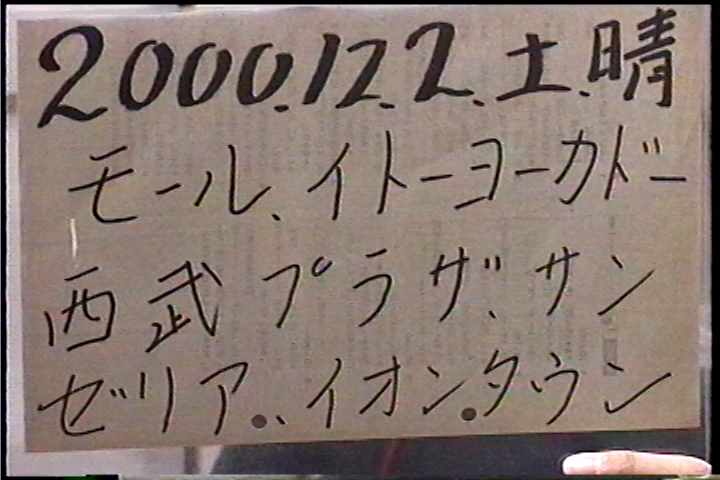 2000.12.2.土.晴
モール、イトーヨーカドー
西武プラザ、サン
ゼリア、イオンタウン